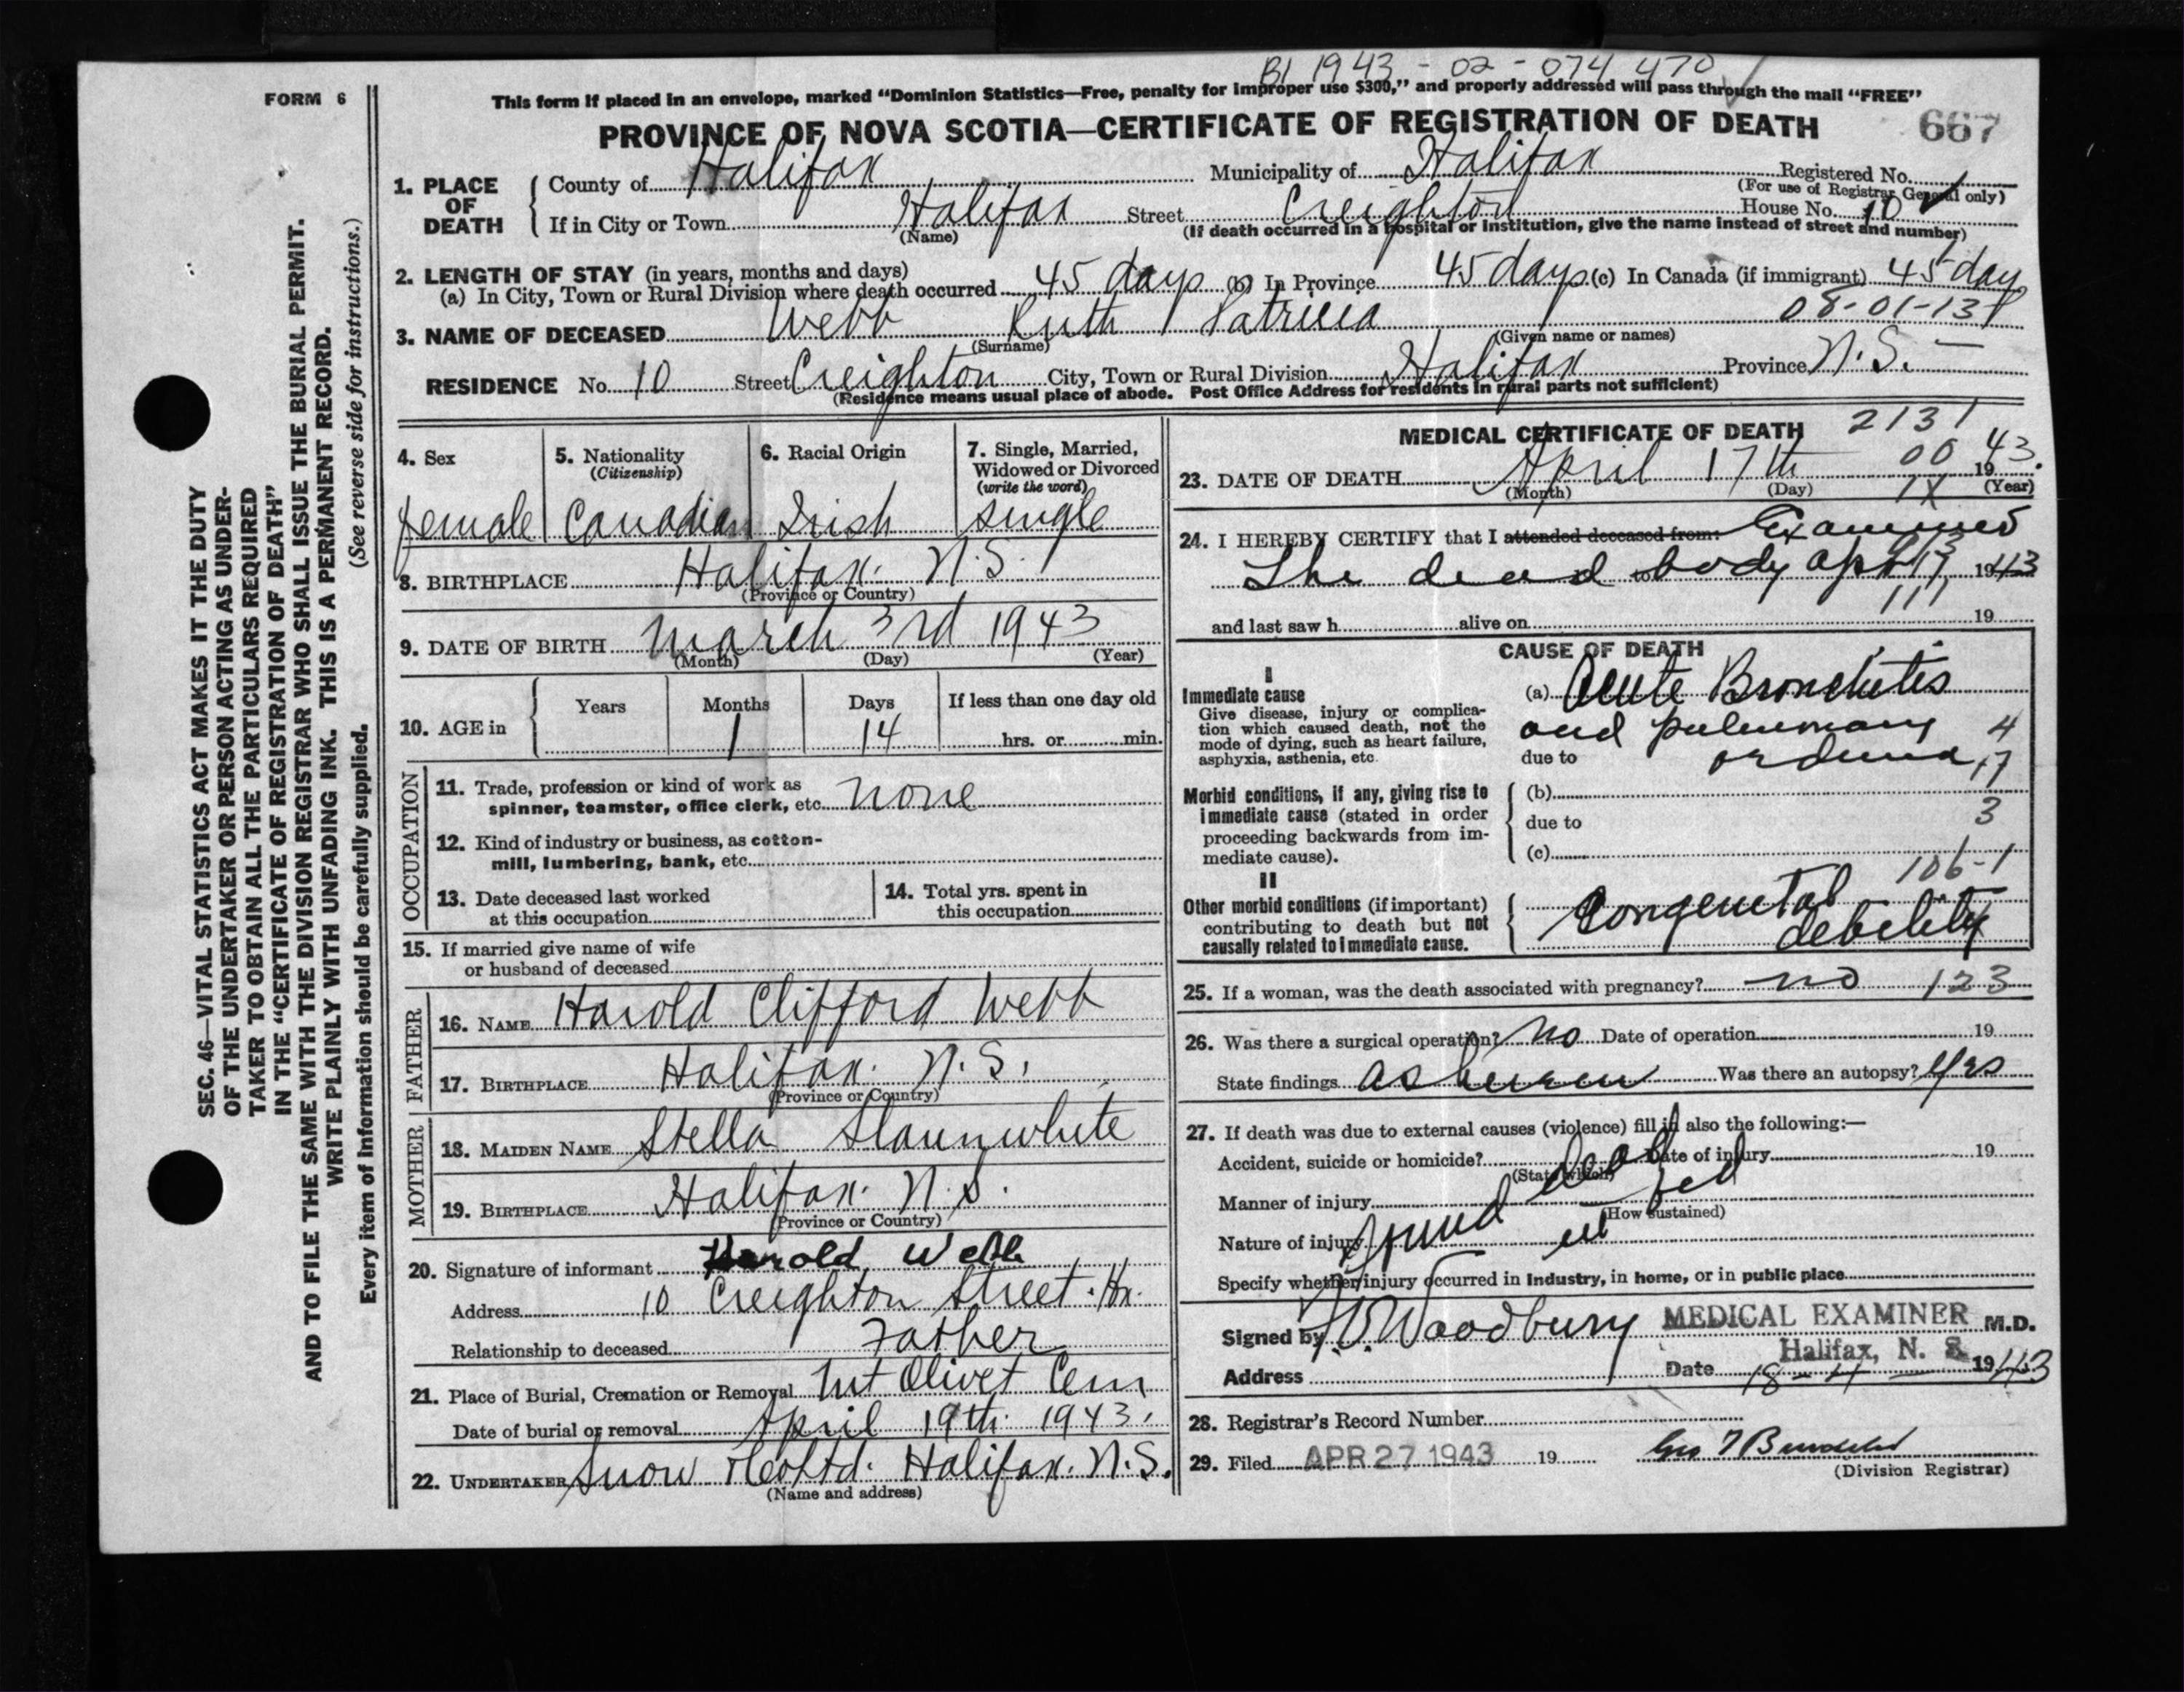 BI 1943-02-074470
FORM 6
This form if placed in an envelope, marked "Dominion Statistics—Free, penalty for improper use $300," and properly addressed will pass through the mail "FREE"
PROVINCE OF NOVA SCOTIA—CERTIFICATE OF REGISTRATION OF DEATH 667
1. PLACE OF DEATH
County of Halifax Municipality of Halifax Registered No.
(For use of Registrar General only)
If in City or Town Halifax Street Creighton House No. 10
(Name) (If death occurred in a hospital or institution, give the name instead of street and number)
2. LENGTH OF STAY (in years, months and days)
(a) In City, Town or Rural Division where death occurred 45 days (b) In Province 45 days (c) In Canada (if immigrant) 45 days
08-01-13
3. NAME OF DECEASED Webb Ruth Patricia
(Surname) (Given name or names)
RESIDENCE No. 10 Street Creighton City, Town or Rural Division Halifax Province N.S.
(Residence means usual place of abode. Post Office Address for residents in rural parts not sufficient)
4. Sex 5. Nationality (Citizenship) 6. Racial Origin 7. Single, Married, Widowed or Divorced (write the word)
female Canadian Irish single
8. BIRTHPLACE Halifax. N.S.
(Province or Country)
9. DATE OF BIRTH March 3rd 1943
(Month) (Day) (Year)
10. AGE in Years Months Days If less than one day old
1 14 hrs. or min.
OCCUPATION
11. Trade, profession or kind of work as
spinner, teamster, office clerk, etc. none
12. Kind of industry or business, as cotton-
mill, lumbering, bank, etc.
13. Date deceased last worked
at this occupation
14. Total yrs. spent in
this occupation
15. If married give name of wife
or husband of deceased
FATHER
16. NAME Harold Clifford Webb
17. BIRTHPLACE Halifax. N.S.
(Province or Country)
MOTHER
18. MAIDEN NAME Stella Slaunwhite
19. BIRTHPLACE Halifax. N.S.
(Province or Country)
20. Signature of informant Harold Webb
Address 10 Creighton Street. Hx.
Relationship to deceased Father
21. Place of Burial, Cremation or Removal Mt Olivet Cem
Date of burial or removal April 19th 1943.
22. UNDERTAKER Snow & Co Ltd. Halifax. N.S.
(Name and address)
MEDICAL CERTIFICATE OF DEATH 2131
00
23. DATE OF DEATH April 17th 1943.
(Month) (Day) (Year)
1X
24. I HEREBY CERTIFY that I attended deceased from: Examined
the dead to body Apr 17, 1943
111
and last saw h alive on 19
CAUSE OF DEATH
I
Immediate cause
Give disease, injury or complica-
tion which caused death, not the
mode of dying, such as heart failure,
asphyxia, asthenia, etc.
(a) Acute Bronchitis
and pulmonary 4
due to œdema 17
Morbid conditions, if any, giving rise to
immediate cause (stated in order
proceeding backwards from im-
mediate cause).
(b)
due to 3
(c)
106-1
II
Other morbid conditions (if important)
contributing to death but not
causally related to immediate cause.
Congenital
debility
25. If a woman, was the death associated with pregnancy? no 123
26. Was there a surgical operation? No Date of operation 19
State findings Was there an autopsy? Yes
27. If death was due to external causes (violence) fill in also the following:—
Accident, suicide or homicide? Date of injury 19
(State which)
Manner of injury
(How sustained)
Found dead in bed
Nature of injury
Specify whether injury occurred in industry, in home, or in public place
Signed by Woodbury MEDICAL EXAMINER M.D.
Halifax, N. S.
Address Date 18-4-1943
28. Registrar's Record Number
29. Filed APR 27 1943 19
(Division Registrar)
SEC. 46—VITAL STATISTICS ACT MAKES IT THE DUTY
OF THE UNDERTAKER OR PERSON ACTING AS UNDER-
TAKER TO OBTAIN ALL THE PARTICULARS REQUIRED
IN THE "CERTIFICATE OF REGISTRATION OF DEATH"
AND TO FILE THE SAME WITH THE DIVISION REGISTRAR WHO SHALL ISSUE THE BURIAL PERMIT.
WRITE PLAINLY WITH UNFADING INK. THIS IS A PERMANENT RECORD.
Every item of information should be carefully supplied. (See reverse side for instructions.)